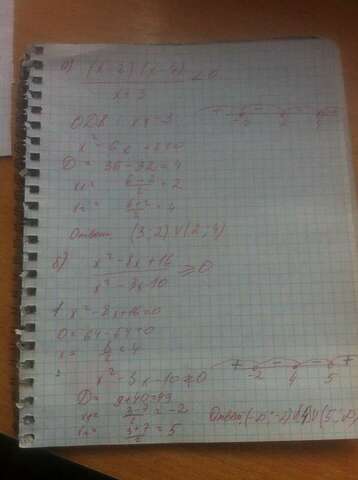 а) (x-2)(x-4) / x+3 < 0
ОДЗ x≠-3
x² - 6x + 8 = 0
D = 36 - 32 = 4
x₁ = (6-2)/2 = 2
x₂ = (6+2)/2 = 4
Ответ (3; 2) ∪ (2; 4)
б) x² - 8x + 16 / x² - 3x - 10 ≥ 0
1. x² - 8x + 16 = 0
D = 64 - 64 = 0
x = 8/2 = 4
2 x² - 3x - 10 ≠ 0
+ -2 - 4 - 5 +
D = 9 + 40 = 49
x₁ = (3-7)/2 = -2
x₂ = (3+7)/2 = 5
Ответ